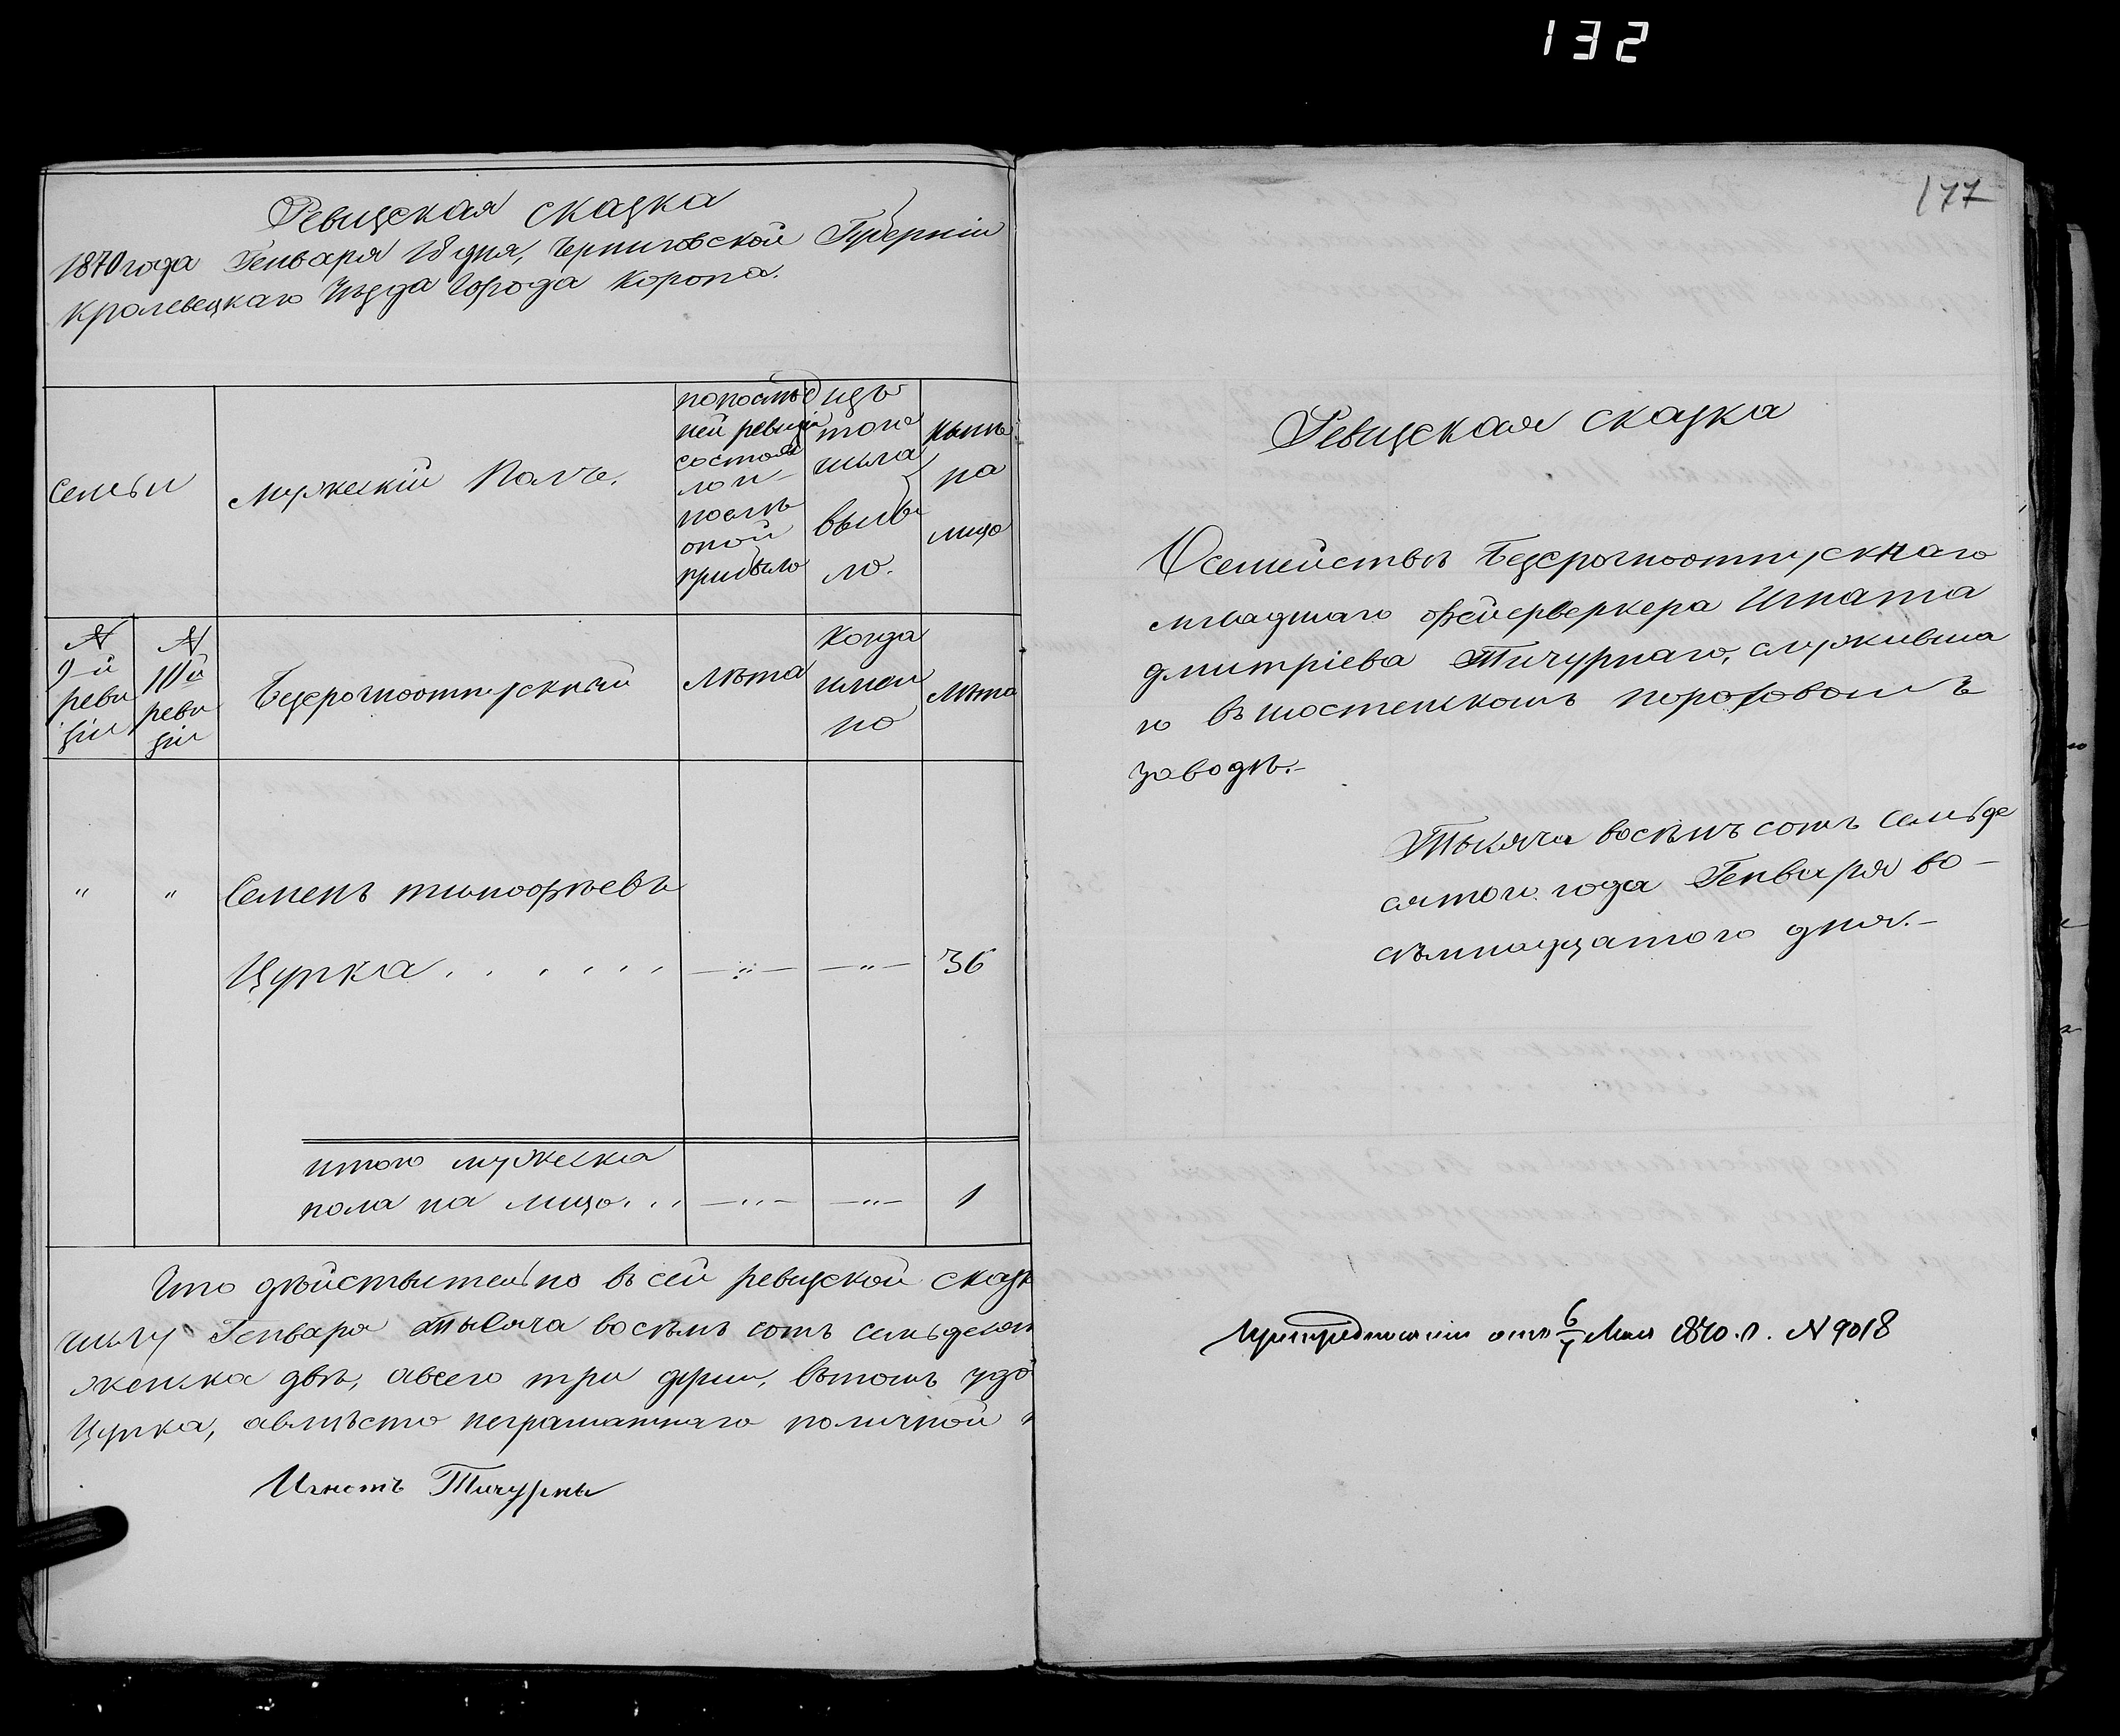 132
Ревизская сказка
1870 года Генваря 18 дня, Черниговской Губерніи
Кролевецкаго Уѣзда Города Коропа.
Семьи
Мужескій Полъ.
по послѣд
ней ревизіи
состоя
ло и
послѣ
оной
прибыло
изъ
того
числа
выбы
ло.
нынѣ
на
лицо
№
9-й
реви
зіи
№
10й
реви
зіи
Безсрочноотпускный
лѣта
когда
имен
но
лѣта
" " Семенъ тимофѣевъ
Цупка . . . . . . — " — — " — 36
итого мужеска
пола на лицо. . . — " — — " — 1
Что дѣйствительно въ сей ревизской сказк
числу Генваря тысяча восѣмъ сотъ семьдесят
женска двѣ, авсего три души, вътомъ удо
Цупка, авмѣсто неграматнаго поличной
Игнатъ Тичурны
177
Ревизская сказка
О семействѣ Безсрочноотпускнаго
младшаго фейерверкера Игната
дмитріева Тичурнаго, служивша
го въ шостенскомъ пороховомъ
заводѣ.-
Тысяча восѣмъ сотъ семьде
сятого года Генваря во-
сѣмнадцатого дня.-
При предписаніи отъ 6/7 Мая 1870 г. № 9018